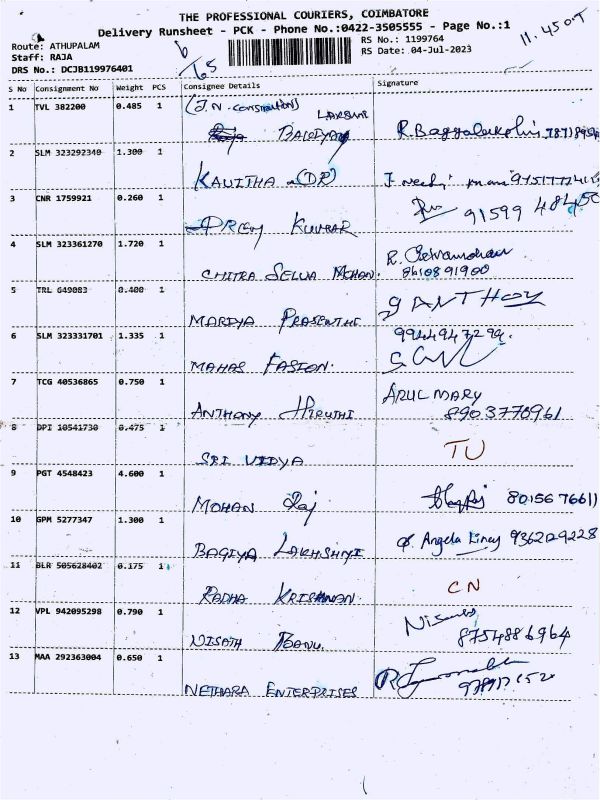 THE PROFESSIONAL COURIERS, COIMBATORE
Delivery Runsheet - PCK - Phone No.:0422-3505555 - Page No.:1
11.45
Route: ATHUPALAM RS No.: 1199764
Staff: RAJA RS Date: 04-Jul-2023
DRS No.: DCJB119976401
65
S No Consignment No Weight PCS Consignee Details Signature
1 TVL 382200 0.485 1 (J.N. 
LAKSHMI
2 SLM 323292340 1.300 1
KAVITHA (DR)
3 CNR 1759921 0.260 1
PREM KUMAR 91599 48450
4 SLM 323361270 1.720 1
CHITRA SELVA MOHAN. 8610891900
5 TRL 649083 0.400 1
MARIYA
6 SLM 323331701 1.335 1 9944947299.
MAHAS FASION.
7 TCG 40536865 0.750 1 ARUL MARY
ANTHONY 8903770961
8 DPI 10541730 0.475 1
SRI VIDYA TU
9 PGT 4548423 4.600 1
MOHAN Raj 8015676611
10 GPM 5277347 1.300 1
BAGIYA LAKHSHMI Angela 9362129228
11 BLR 505628402 0.175 1
RADHA KRISHNAN. CN
12 VPL 942095298 0.790 1
NISATH BANU. 8754886964
13 MAA 292363004 0.650 1
NETHARA ENTERPRISES